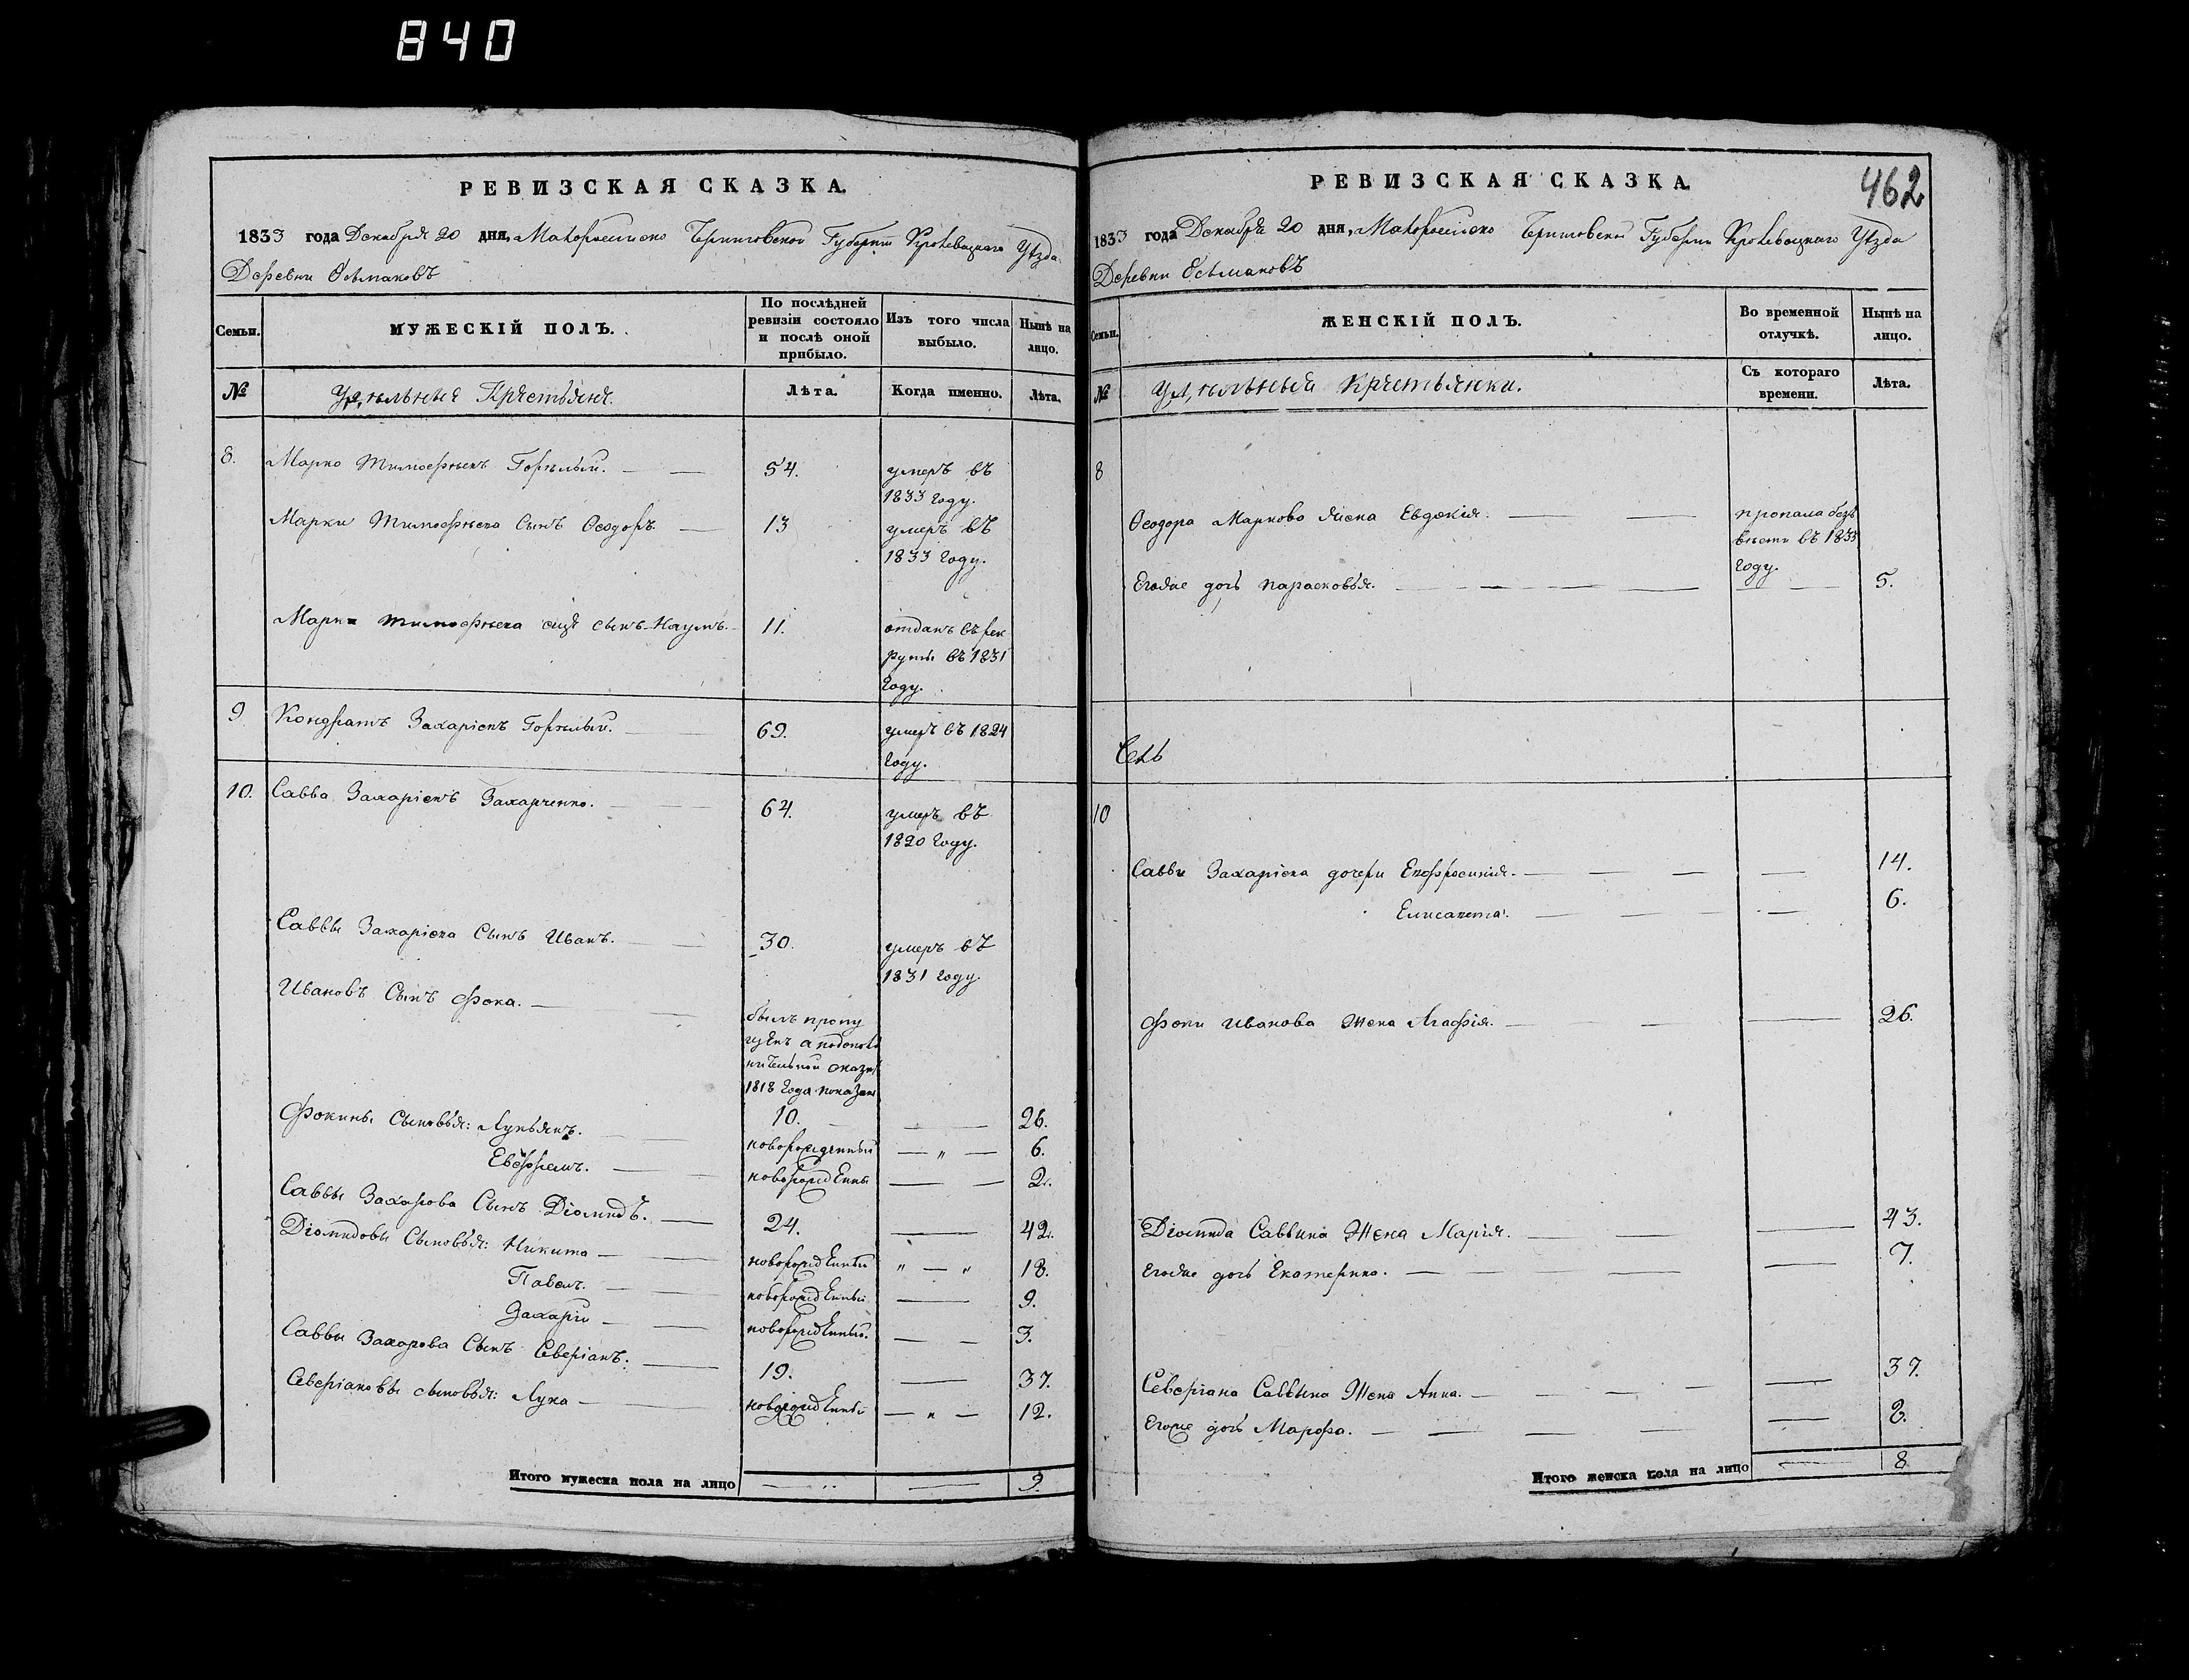 840
РЕВИЗСКАЯ СКАЗКА.
1833 года Декабря 20 дня, Малороссийско Черниговской Губернии Кролевецкаго Уѣзда
Деревни Осьмаковъ
Семьи. МУЖЕСКІЙ ПОЛЪ. По послѣдней ревизіи состояло и послѣ оной прибыло. Изъ того числа выбыло. Нынѣ на лицо.
№ Удѣльные Крестьяне. Лѣта. Когда именно. Лѣта.
8. Марко Тимофѣевъ Горѣлый. 54. умеръ въ
1833 году.
Марки Тимофѣева Сынъ Ѳеодоръ 13 умеръ въ
1833 году.
Марки Тимофѣева еще сынъ Наумъ. 11. отданъ въ рек
руты въ 1831
году.
9 Кондратъ Захаріевъ Горѣлый. 69. умеръ въ 1824
году.
10. Савва Захаріевъ Захарченко. 64. умеръ въ
1820 году.
Саввы Захаріева Сынъ Иванъ. 30. умеръ въ
1831 году
Ивановъ Сынъ Фока.
былъ пропу
щенъ а по дополн
нительной сказки
1818 года показанъ
10. 26.
Фокины Сыновья: Лукьянъ. новорожденный — " — 6.
Евфремъ. новорожденны 2.
Саввы Захарова Сынъ Діомидъ. 24. 42.
Діомидовы Сыновья: Никита новорожденный " — " 18.
Павелъ. новорожденный 9.
Захарій новорожденный. 3.
Саввы Захарова Сынъ Северіанъ. 19. 37.
Северіановы сыновья: Лука новорожденный — " — 12.
Итого мужеска пола на лицо 9.
РЕВИЗСКАЯ СКАЗКА.
462
1833 года Декабря 20 дня, Малороссийско Черниговской Губернии Кролевецкаго Уѣзда
Деревни Осьмаковъ
Семьи. ЖЕНСКІЙ ПОЛЪ. Во временной отлучкѣ. Нынѣ на лицо.
№ Удѣльныя Крестьянки. Съ котораго времени. Лѣта.
8
Ѳеодора Маркова Жена Евдокія. пропала безъ
вѣсти въ 1833
году.
Егоже дочь Парасковья. 5.
10
Саввы Захаріева дочери Ефросинія. 14.
Елисавета. 6.
Фоки Иванова Жена Агафія. 26.
Діомида Саввина Жена Марія. 43.
Егоже дочь Екатерина. 7.
Северіана Саввина Жена Анна. 37.
Егоже дочь Марфа. 2.
Итого женска пола на лицо 8